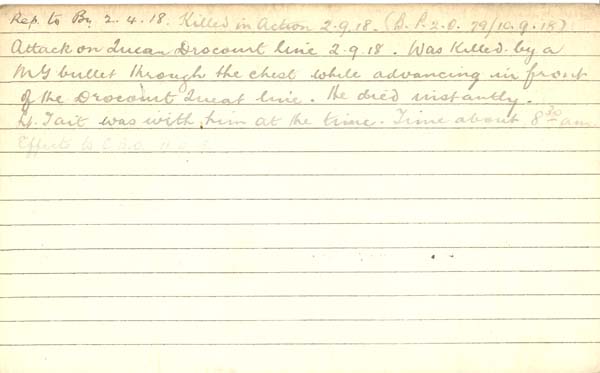 Rep. to By. 2.4.18. Killed in Action 2.9.18. (B.P.2.O. 79/10.9.18)
Attack on Quean Drocourt line 2.9.18. Was killed by a
MG bullet through the chest while advancing in front
of the Drocourt Queat line. He died instantly.
Lt. Tait was with him at the time. Time about 8 30 am.
Effects to